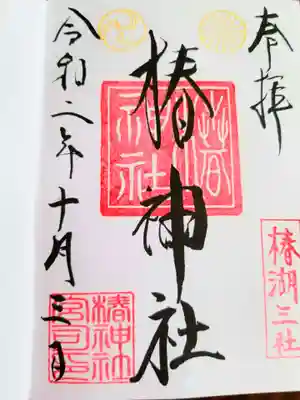 奉拝
椿湖三社
椿神社
椿神社
令和二年十月三日
椿神社
宮司之印